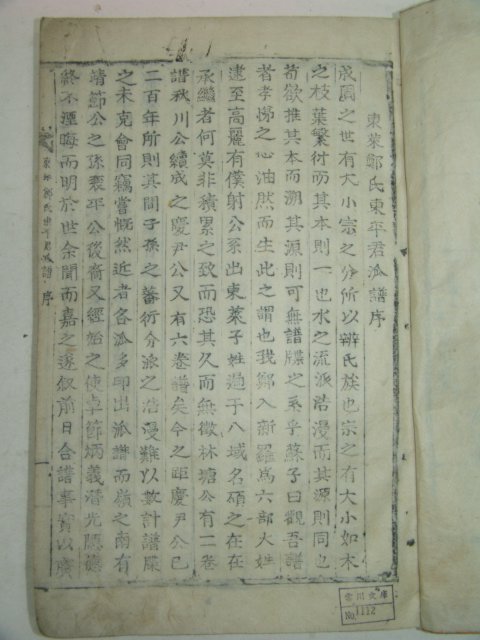 東萊鄭氏東平君派譜序
成周之世有大小宗之分所以辨氏族也宗之有大小如木
之枝葉繁衍而其本則一也水之流派浩漫而其源則同也
苟欲推其本而溯其源則可無譜牒之系乎蘇子曰觀吾譜
者孝悌之心油然而生此之謂也我鄭入新羅爲六部大姓
逮至高麗有僕射公系出東萊子姓遍于八域名碩之在在
承繼者何莫非積累之致而恐其久而無徵林塘公有二卷
譜秋川公續成之慶尹公又有六卷譜矣今之距慶尹公已
二百年所則其間子孫之蕃衍分派之浩漫難以數計譜
之未克會同竊嘗慨然近者各派多印出派譜而嶺之南有
靖節公之孫襄平公後裔又經始之使卓節炳義潛光隱德
終不湮晦而明於世余聞而嘉之遂叙前日合譜事實以
東萊鄭氏東平君派譜 序
一
雲川文庫
No. 1112